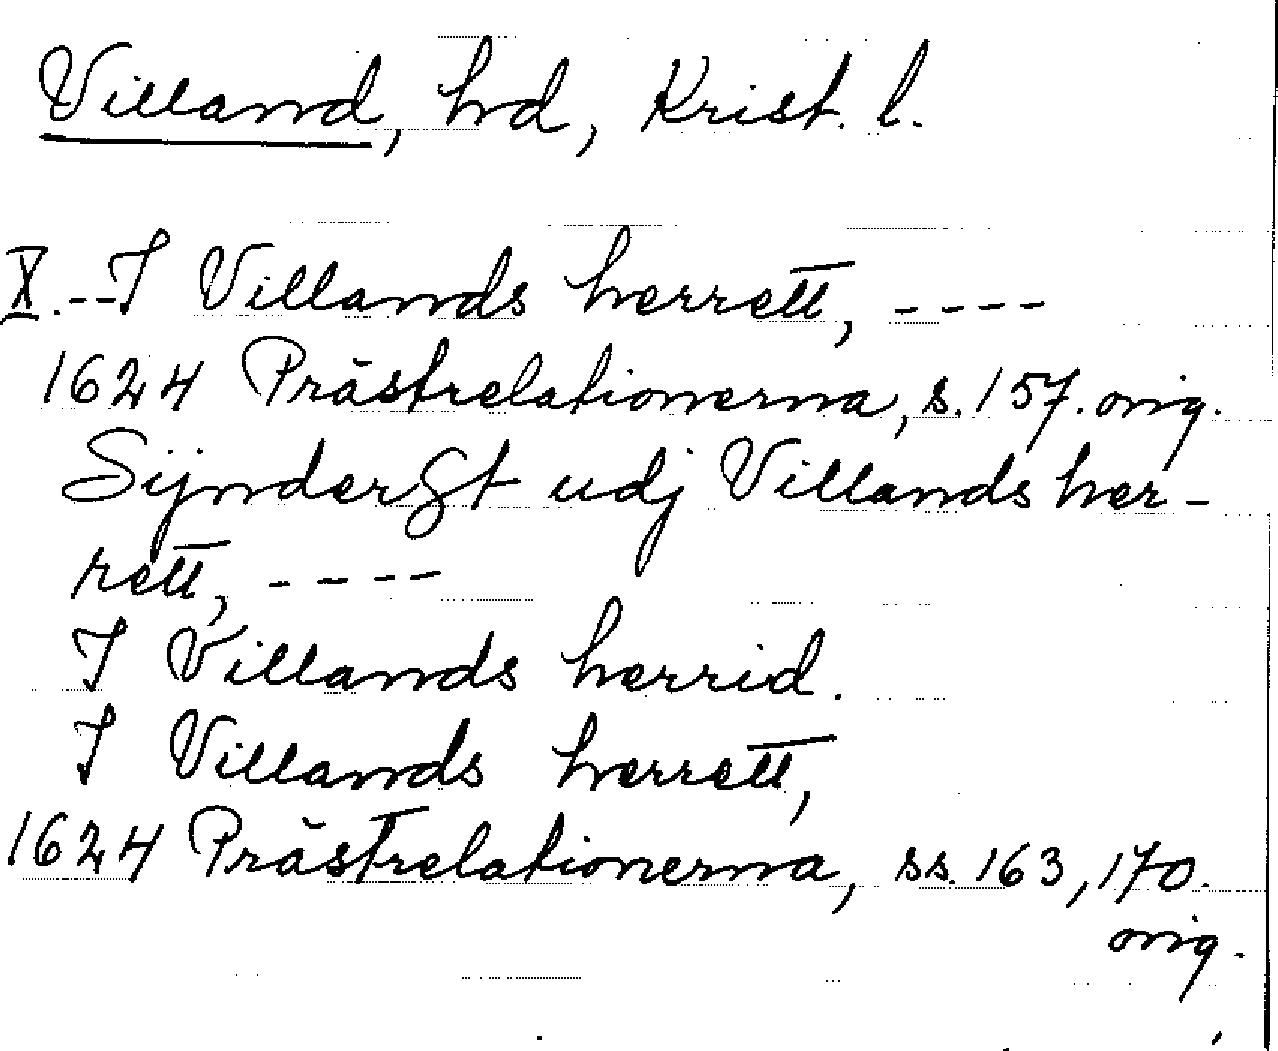 Villand, hd, Krist. l.
X.--I Villands herrett, ----
1624 Prästrelationerna, s. 157. orig.
Sÿnderst udj Villands her-
rett, ----
I Villands herrid.
I Villands herrett,
1624 Prästrelationerna, ss. 163, 170.
orig.